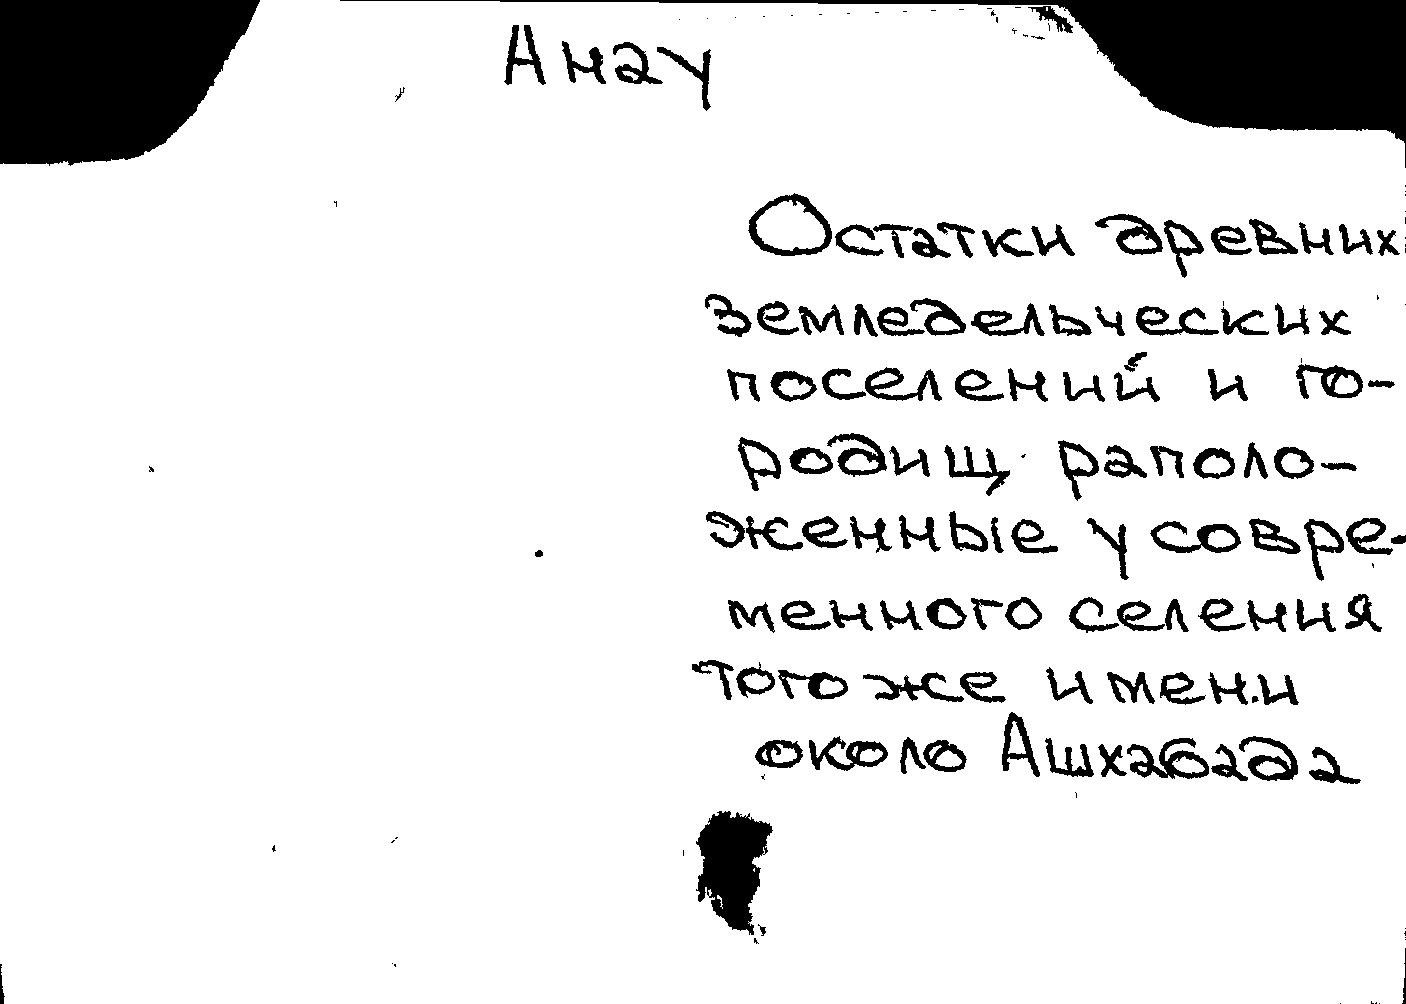 Анау
Остатки древних
земледельческих
поселений и го-
родищ раполо-
женные у совре-
менного селения
того же имени
около Ашхабада